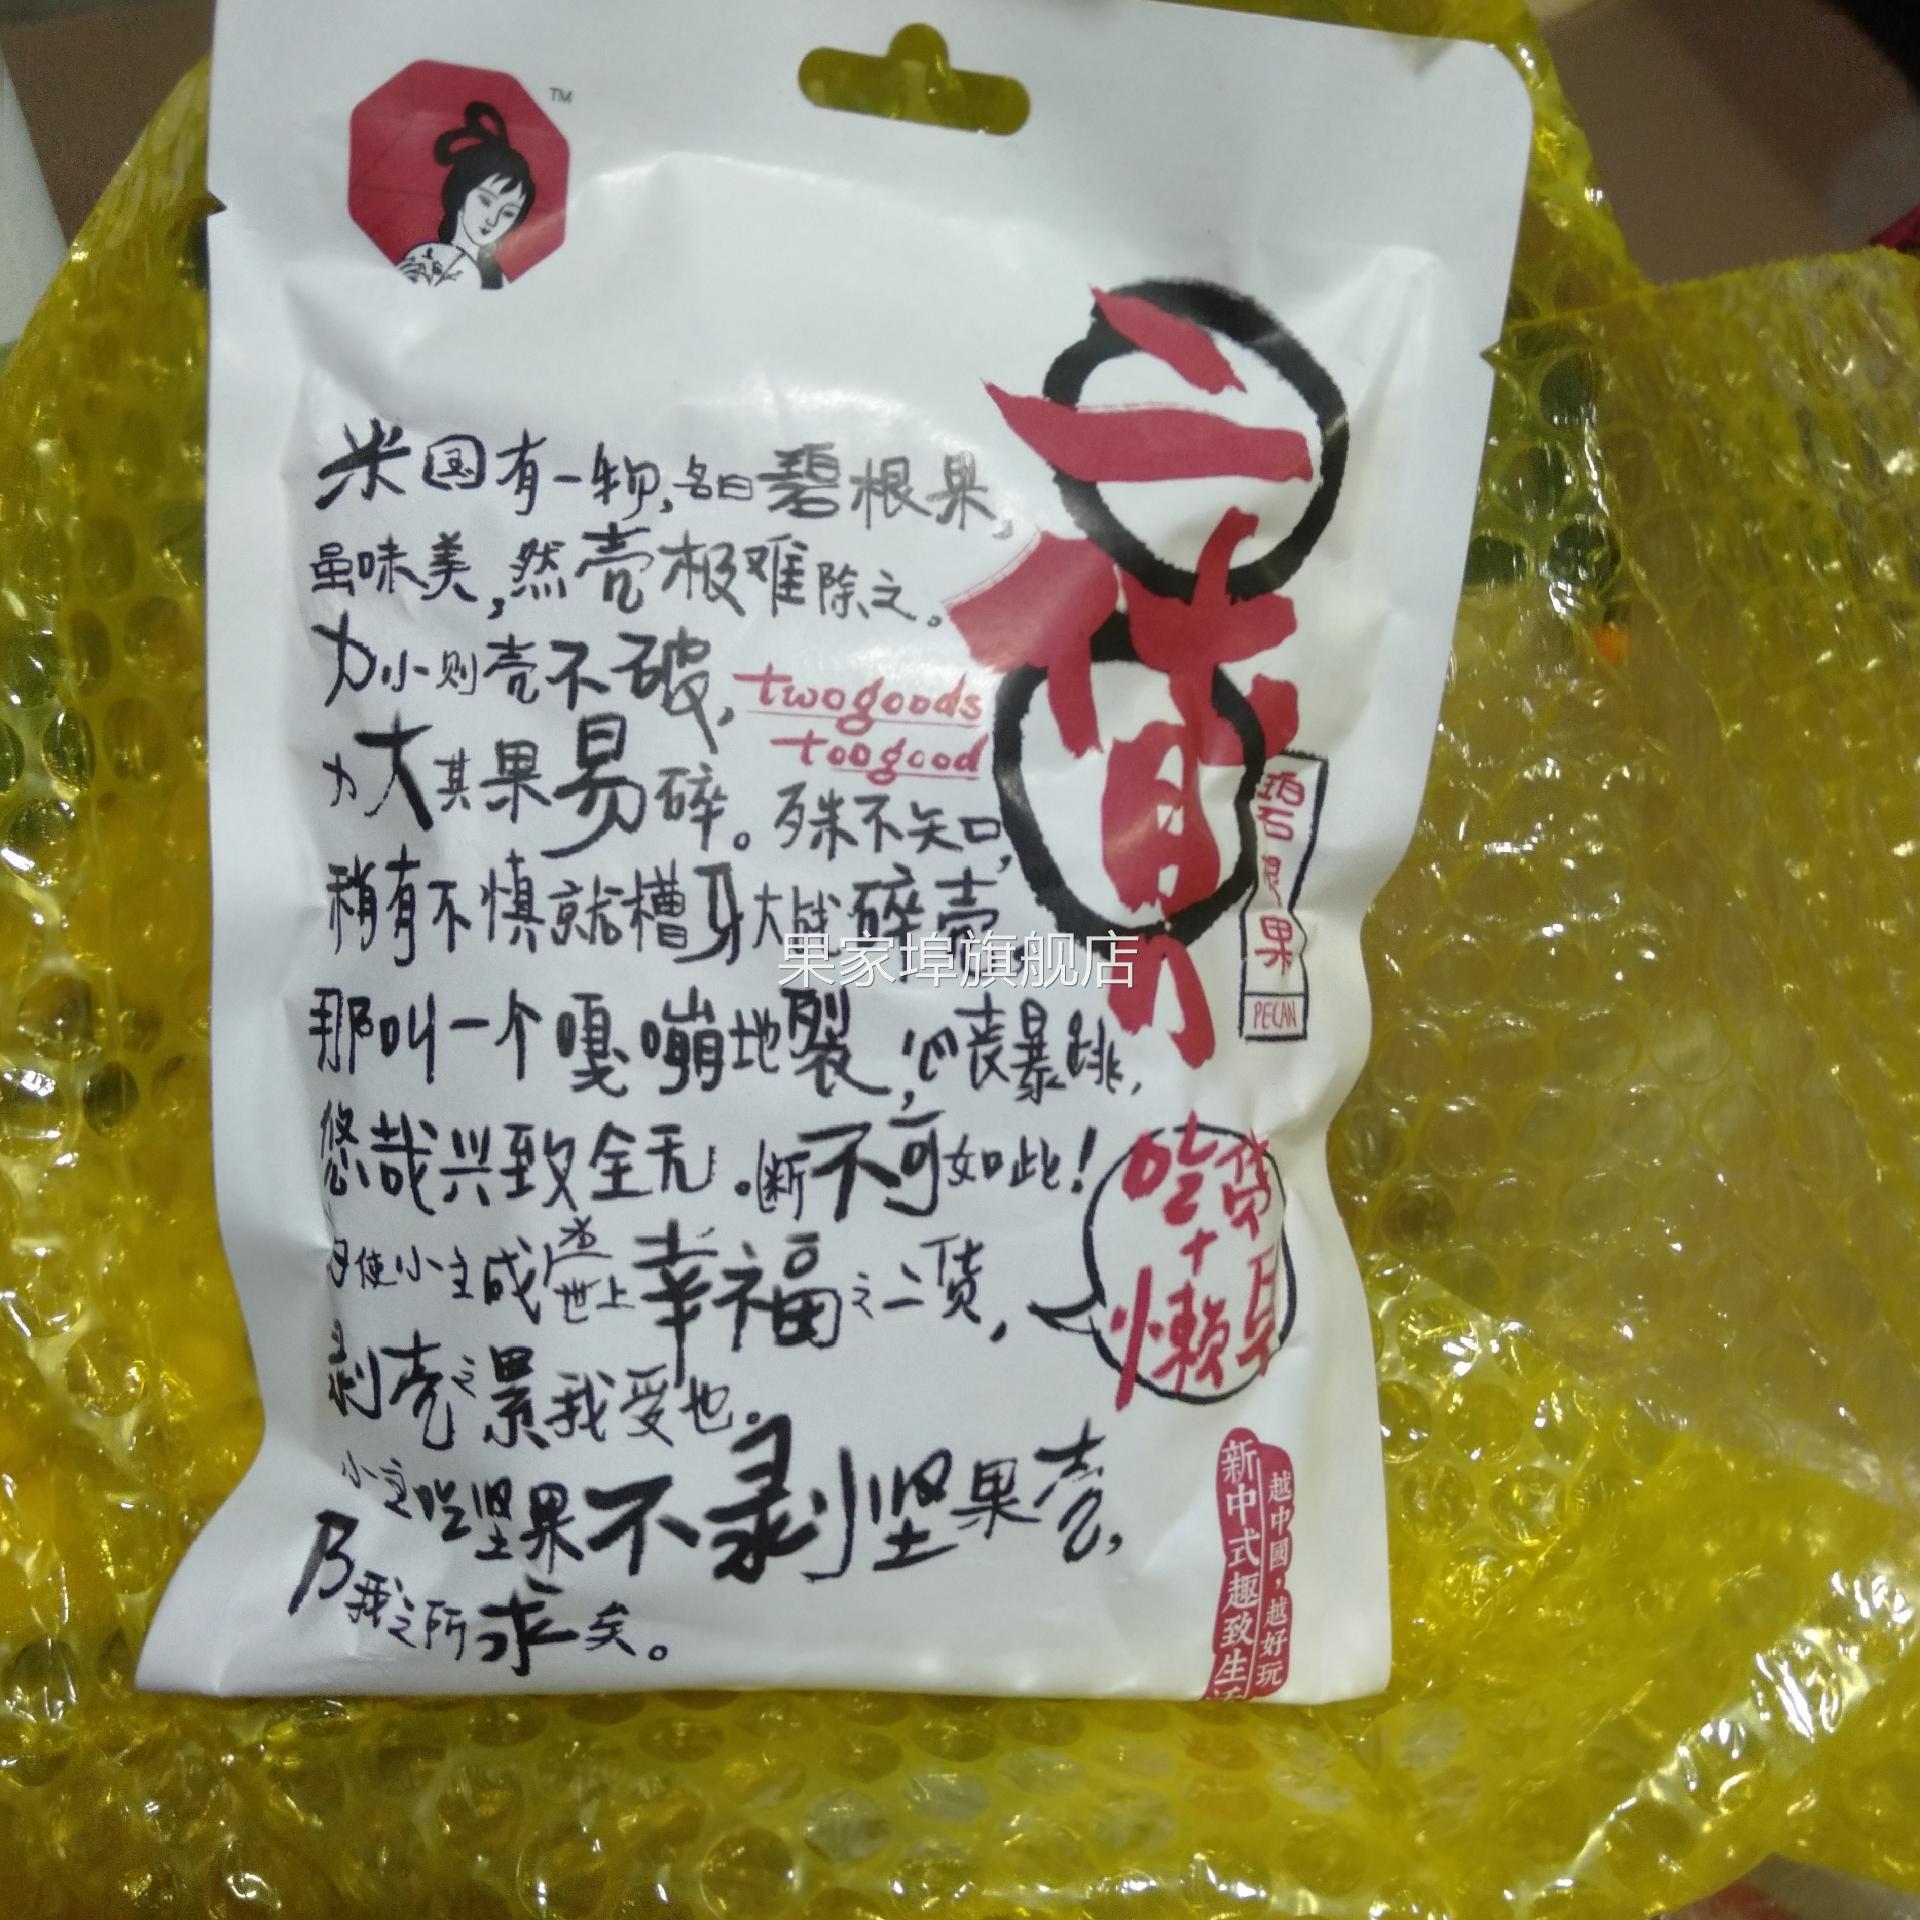 TM
米国有一物,名曰碧根果,
虽味美,然壳极难除之。
力小则壳不破,
力大其果易碎。殊不知,
稍有不慎就槽牙大战碎壳。
那叫一个嘎嘣地裂,心丧暴跳,
悠哉兴致全无。断不可如此!
为使小主成为世上幸福之二货,
剥壳之累我受也。
小主吃坚果不剥坚果壳,
乃我之所求矣。
twogoods
toogood
二货
碧根果
PECAN
吃货
+
懒
新中式趣致生活
越中國,越好玩
果家埠旗舰店